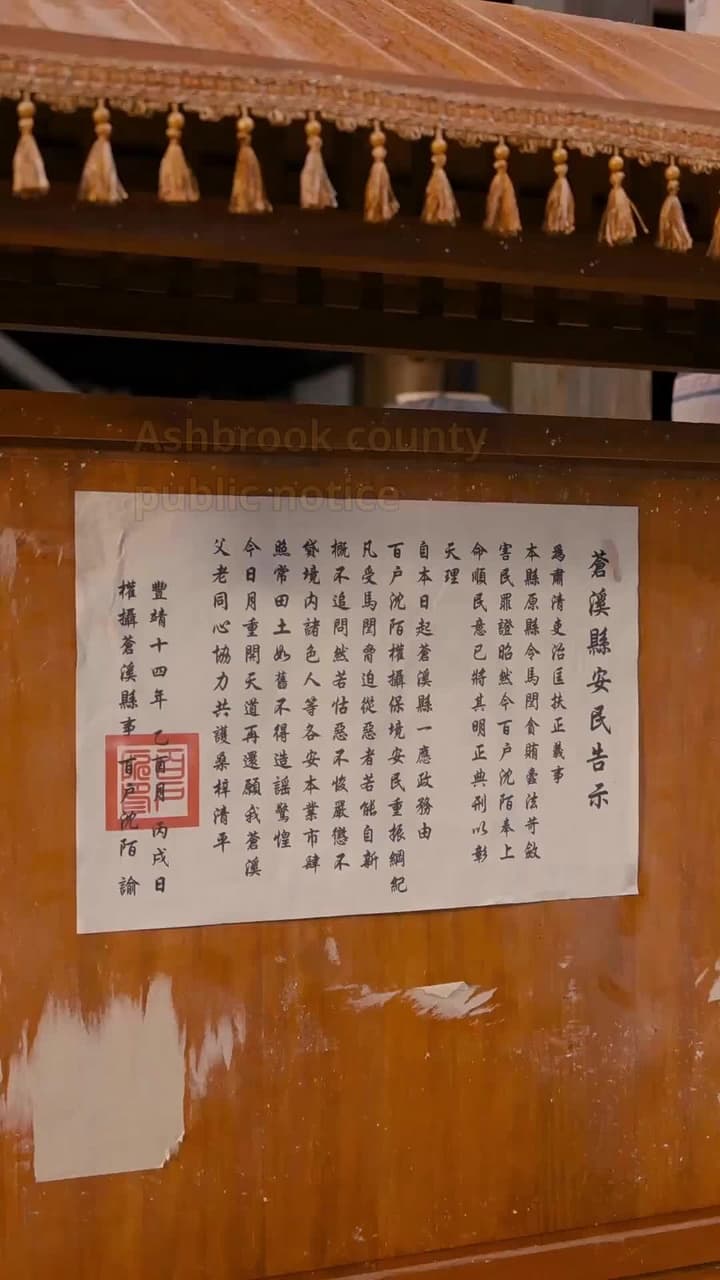 Ashbrook county
public notice
蒼溪縣安民告示
為肅清吏治匡扶正義事
本縣原縣令馬閏貪賄蠹法苛斂
害民罪證昭然今百户沈陌奉上
命順民意已將其明正典刑以彰
天理
自本日起蒼溪縣一應政務由
百户沈陌權攝保境安民重振綱紀
凡受馬閏脅迫從惡者若能自新
概不追問然若怙惡不悛嚴懲不
貸境内諸色人等各安本業市肆
照常田土如舊不得造謠驚惶
今日月重開天道再還願我蒼溪
父老同心協力共護桑梓清平
豐靖十四年 乙酉月 丙戌日
權攝蒼溪縣事 百户沈陌 諭